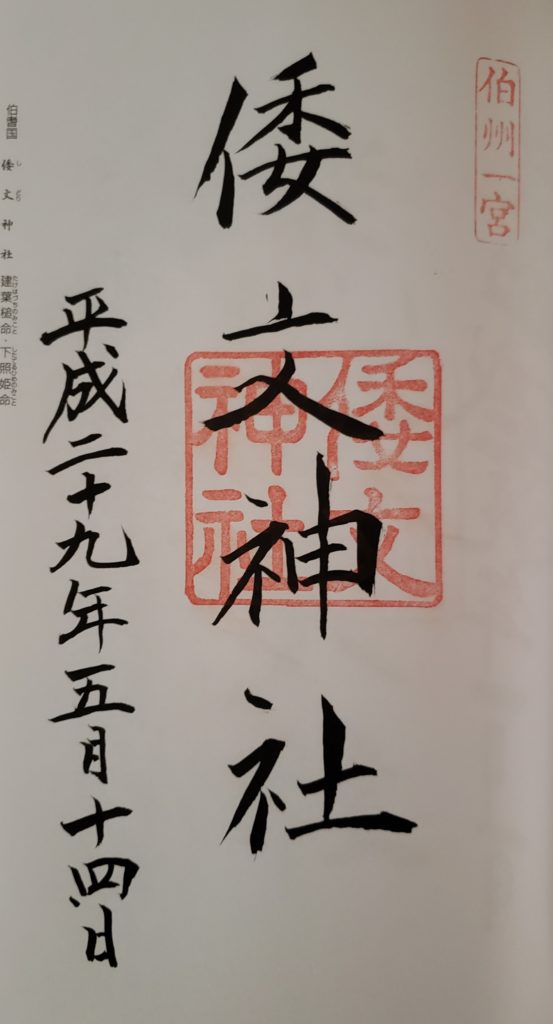 伯州一宮
倭文神社
倭文
神社
平成二十九年五月十四日
伯耆国 倭文神社 建葉槌命・下照姫命